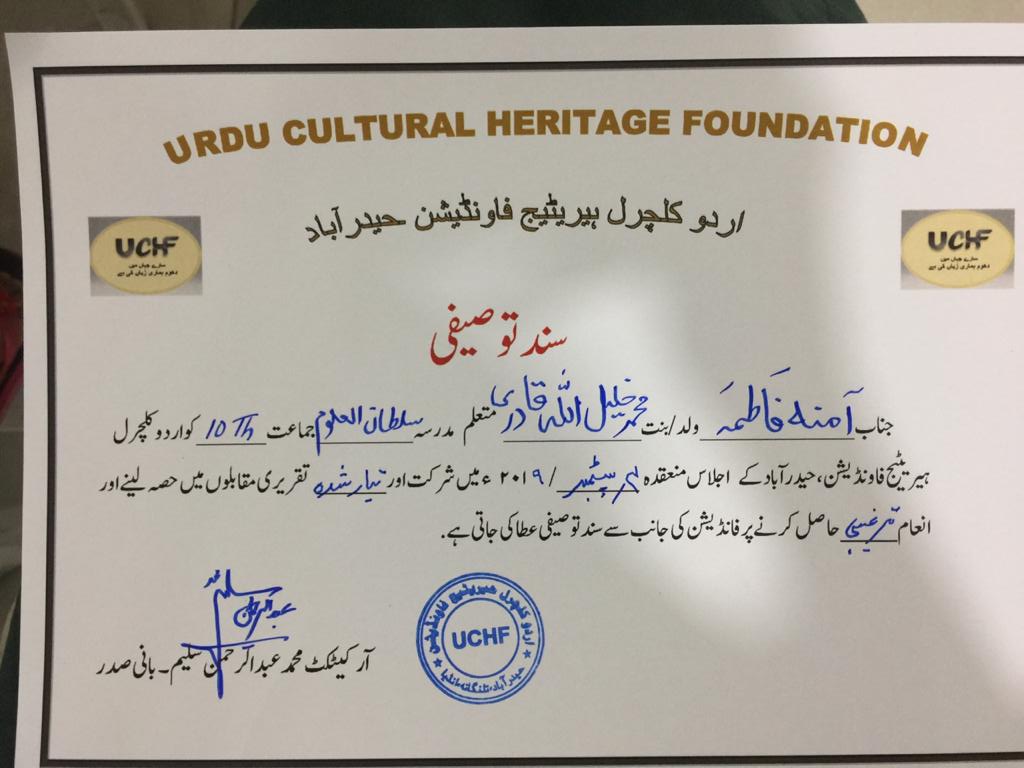 URDU CULTURAL HERITAGE FOUNDATION
اردو کلچرل ہیریٹیج فاونڈیشن حیدرآباد
UCHF
سارے جہاں میں
دھوم ہماری زباں کی ہے
UCHF
سارے جہاں میں
دھوم ہماری زباں کی ہے
سند توصیفی
جناب آمنہ فاطمہ ولد/بنت محمد خلیل اللہ قادری متعلم مدرسہ سلطان العلوم جماعت 10Th کو اردو کلچرل
ہیریٹیج فاونڈیشن، حیدرآباد کے اجلاس منعقدہ ستمبر / ۲۰۱۹ء میں شرکت اور تیار شدہ تقریری مقابلوں میں حصہ لینے اور
انعام ترغیبی حاصل کرنے پر فانڈیشن کی جانب سے سند توصیفی عطا کی جاتی ہے.
آرکیٹکٹ محمد عبدالرحمن سلیم۔ بانی صدر
اردو کلچرل ہیریٹیج فاونڈیشن
UCHF
حیدرآباد، تلنگانہ، انڈیا